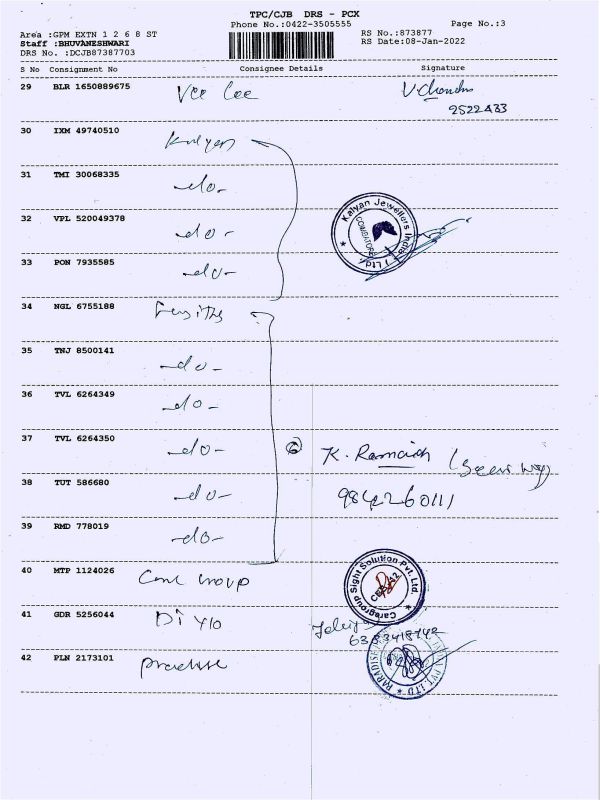 TPC/CJB DRS - PCX
Phone No.:0422-3505555
Page No.:3
Area :GPM EXTN 1 2 6 8 ST
Staff :BHUVANESHWARI
DRS No. :DCJB87387703
RS No.:873877
RS Date:08-Jan-2022
S No Consignment No Consignee Details Signature
29 BLR 1650889675 Vee Cee V.Chandra
2522433
30 IXM 49740510 Kalyan
31 TMI 30068335 -do-
32 VPL 520049378 -do-
Kalyan Jewellers India Ltd.
COIMBATORE
33 PON 7935585 -do-
34 NGL 6755188
35 TNJ 8500141 -do-
36 TVL 6264349 -do-
37 TVL 6264350 -do- 6 K. Ramaiah
38 TUT 586680 -do- 9842260111
39 RMD 778019 -do-
40 MTP 1124026 Care Group
Caregroup Sight Solution Pvt. Ltd.
CBE-42
41 GDR 5256044
6383418742
42 PLN 2173101 Paradise
PARADISE PVT. LTD